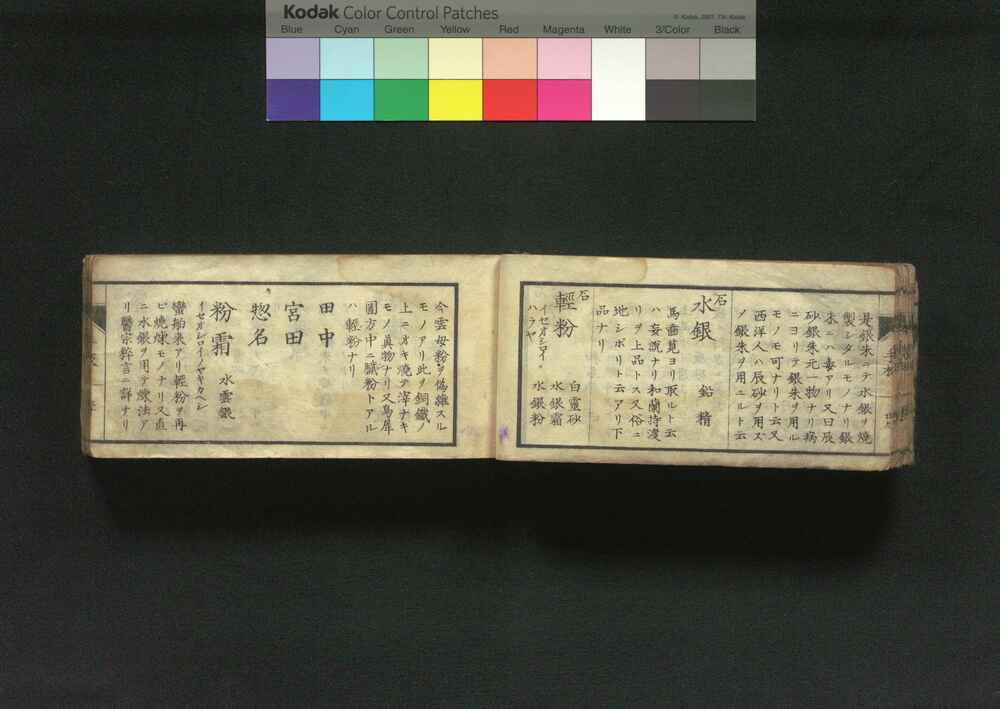 Kodak Color Control Patches
Blue Cyan Green Yellow Red Magenta White 3/Color Black
是銀朱ニテ水銀ヲ燒
製シタルモノナリ銀
朱ニハ毒アリ又曰辰
砂銀朱元一物ナリ病
ニヨリテ銀朱ヲ用ル
モノモ可ナリト云又
西洋人ハ辰砂ヲ用ズ
ノ銀朱ヲ用ニルト云
石
水銀 鉛精
馬齒莧ヨリ取ルト云
ハ妄說ナリ和蘭持渡
リヲ上品トス俗ニ
地シボリト云アリ下
品ナリ
石
輕粉 白靈砂
イセオシロイ 水銀霜
ハラヤ 水銀粉
今雲母粉ヲ偽雜スル
モノアリ此ヲ銅鐵ノ
上ニオキ燒テ滓ナキ
モノ眞物ナリ又烏犀
圓方中ニ膩粉トアル
ハ輕粉ナリ
田中
宮田
惣名
粉霜 水雲銀
イセオシロイノヤキカヘシ
蠻舶來アリ輕粉ヲ再
ビ燒煉モノナリ又直
ニ水銀ヲ用テ煉法ア
リ醫宗粹言ニ詳ナリ